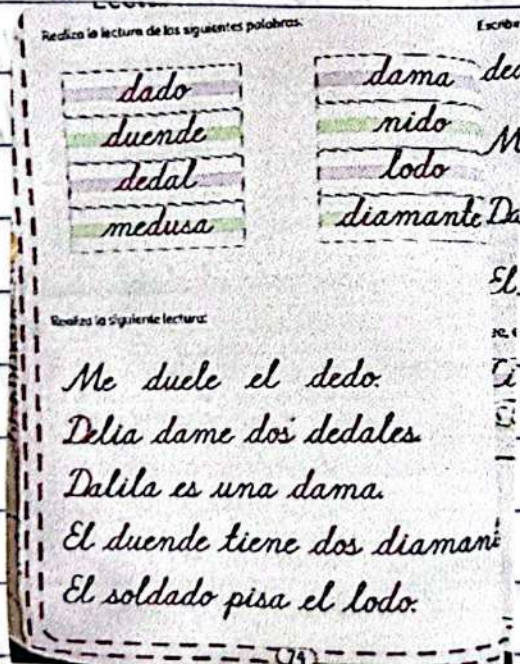 Realiza la lectura de las siguientes palabras:
dado
duende
dedal
medusa
dama
nido
lodo
diamante
Realiza la siguiente lectura:
Me duele el dedo.
Delia dame dos dedales.
Dalila es una dama.
El duende tiene dos
El soldado pisa el lodo.
74
El